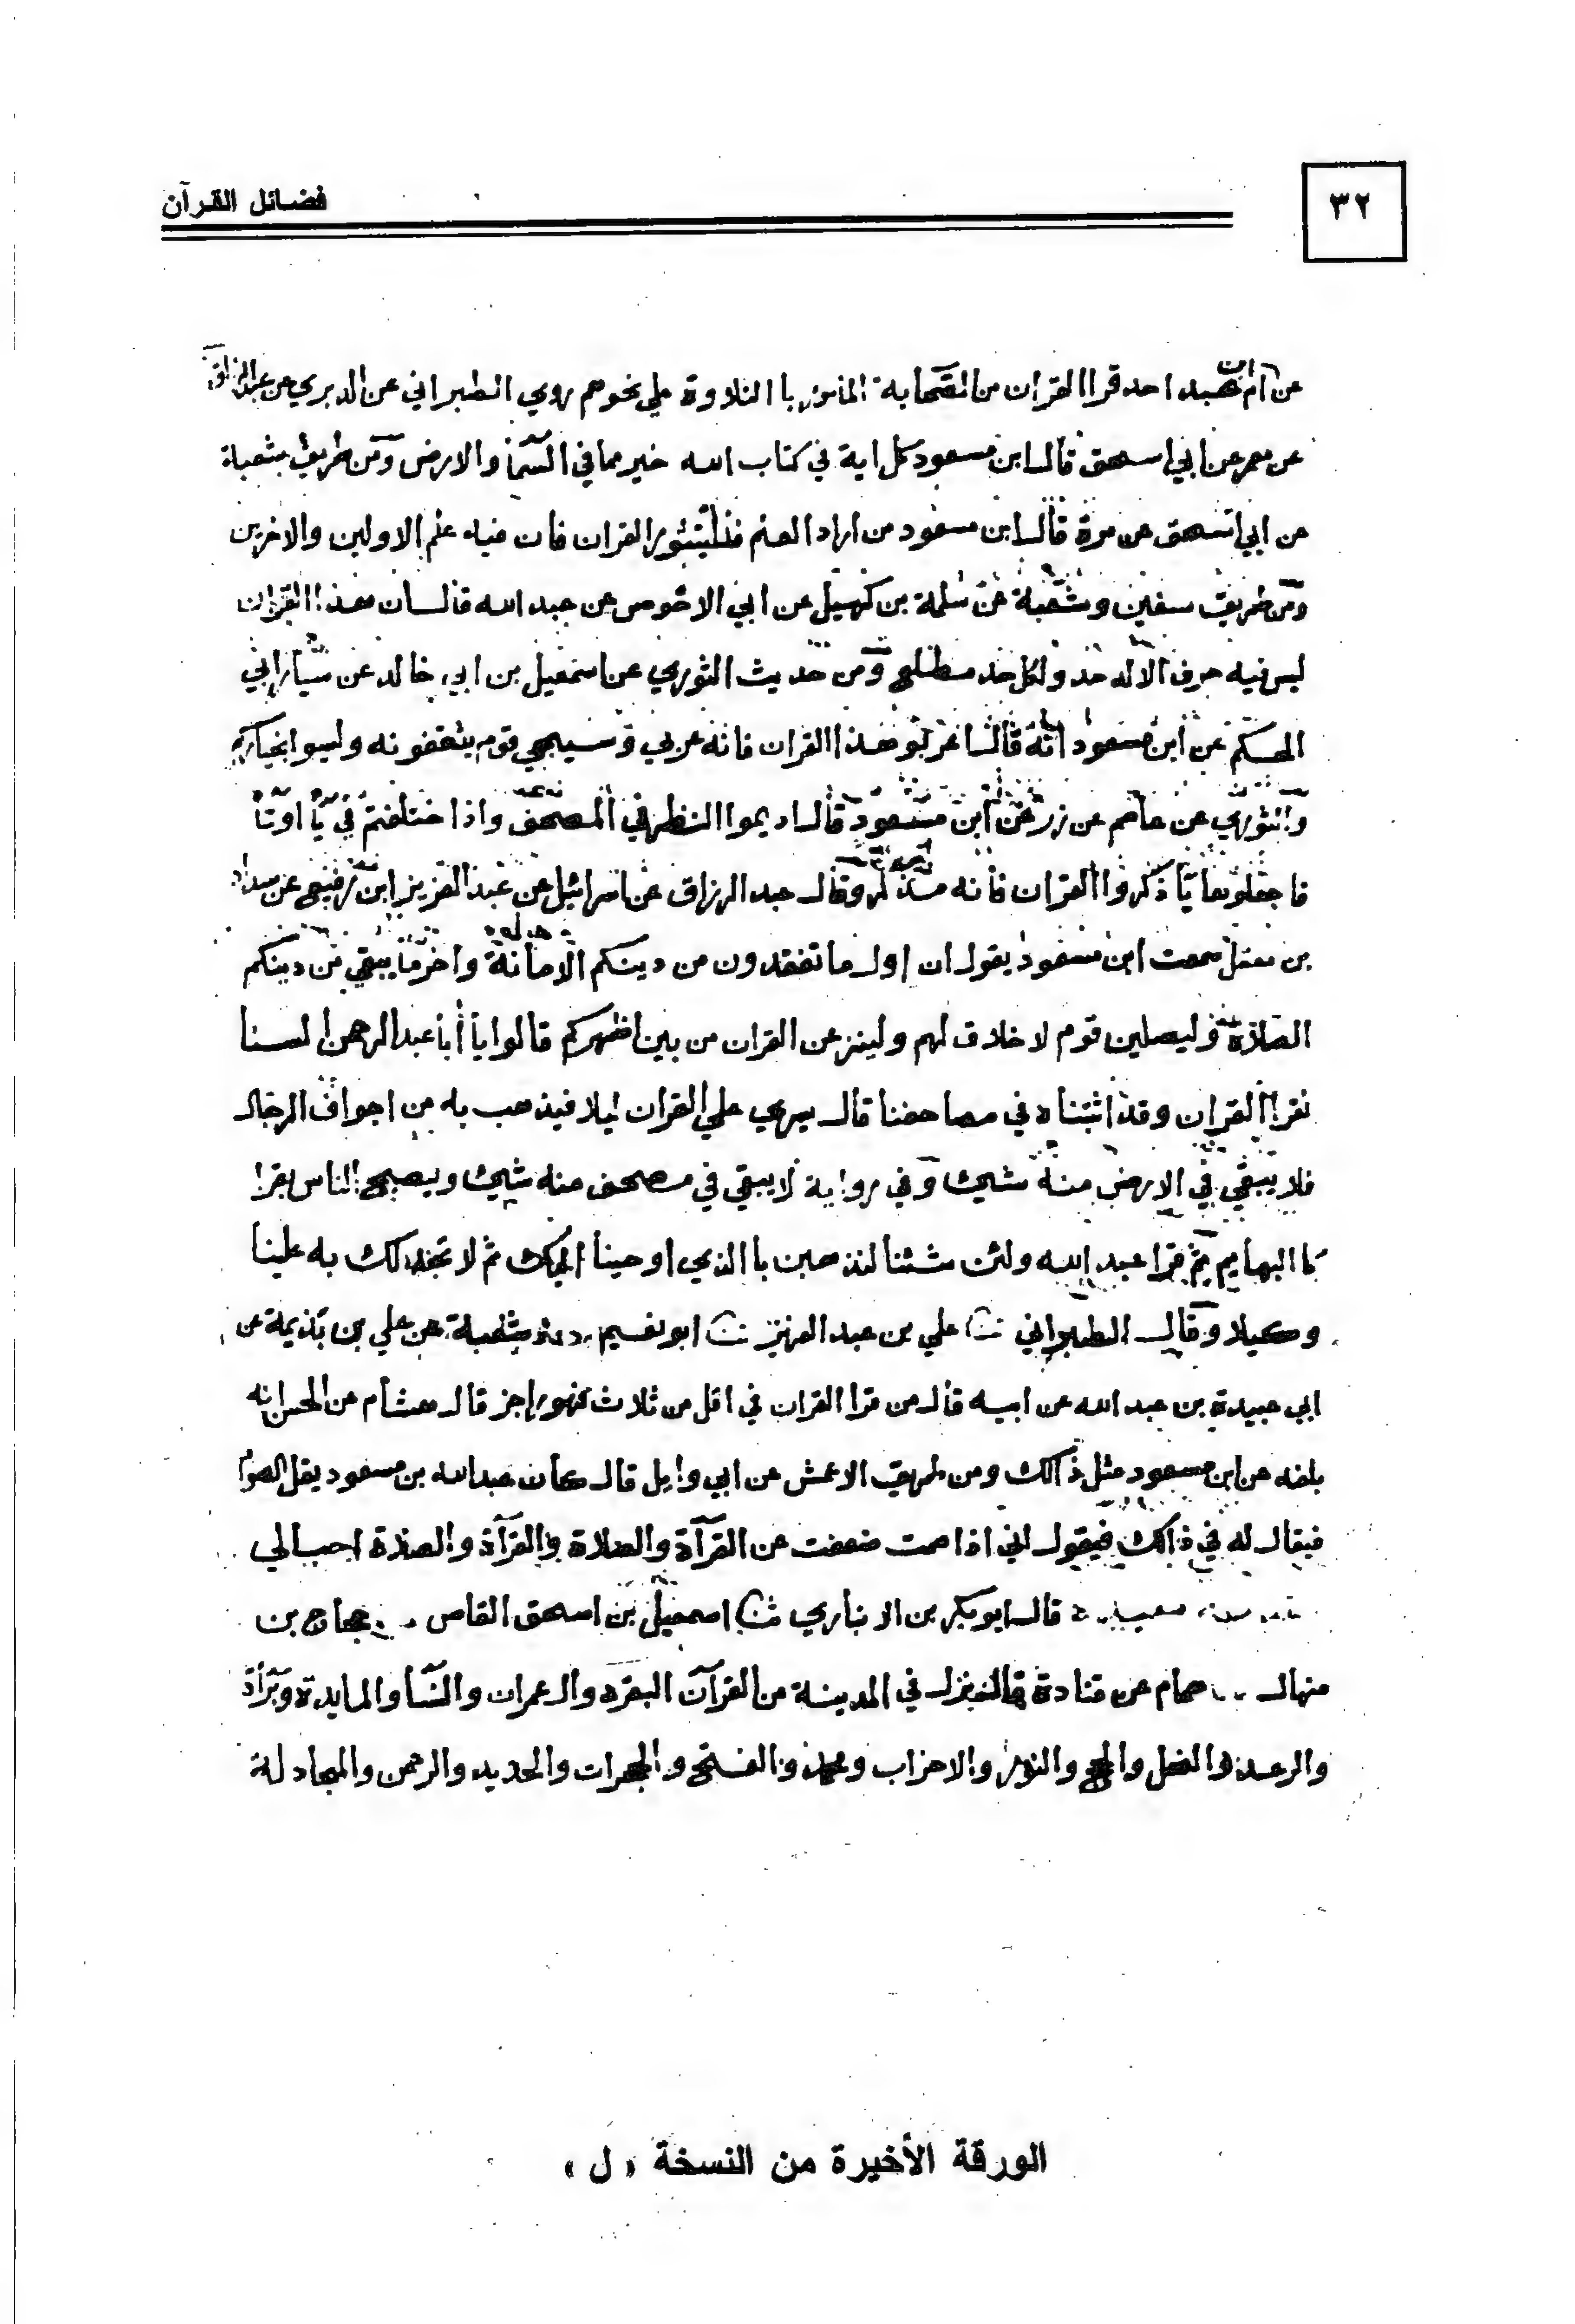 فضائل القرآن
٣٢
عن ابن ام عبد احد قرا القران من الصحابة المأمور با التلاوة علي نحوهم روي الطبراني عن الدبري عن عبد الرزاق
عن معمر عن ابي اسحق قال ابن مسعود كل اية في كتاب الله خير مما في السمآ والارض ومن طريق شعبة
عن ابي اسحق عن مرة قال ابن مسعود من اراد العلم فليتبوا القران فان فيه علم الاولين والاخرين
ومن طريق سفين وشعبة عن سلمة بن كهيل عن ابي الاحوص عن عبد الله قال ان هذا القران
ليس فيه حرف الا له حد ولكل حد مطلع ومن حديث الثوري عن اسمعيل بن ابي خالد عن سيار ابي
الحكم عن ابن مسعود انه قال اعربو هذا القران فانه عربي وسيجي قوم يثقفونه وليسوا بخياركم
والثوري عن عاصم عن زر عن ابن مسعود قال اديموا النظر في المصحف واذا ختلفتم في يآ اوتآ
فاجعلوها يآ ذكروا القران فانه مذكر وقال عبد الرزاق عن اسرائيل عن عبد العزيز ابن رفيع عن سداد
بن معقل سمعت ابن مسعود يقول ان اول ما تفقدون من دينكم الامانة واخر ما يبقي من دينكم
الصلاة وليصلين قوم لا خلاق لهم ولينزعن القران من بين اظهركم قالوا يا أبا عبد الرحمن السنا
نقرا القران وقد اثبتناه في مصاحفنا قال يسري علي القران ليلا فيذهب به من اجواف الرجال
فلا يبقي في الارض منه شيئ وفي رواية لا يبقي في مصحف منه شيئ ويصبح الناس فقرا
كا البهايم ثم قرا عبد الله ولئن شئنا لنذهبن با الذي اوحينا اليك ثم لا تجد لك به علينا
وكيلا وقال الطبراني ثنا علي بن عبد العزيز ثنا ابو نعيم شعبة عن علي بن بذيمة عن
ابي عبيدة بن عبد الله عن ابيه قال من قرا القران في اقل من ثلاث فهو راجز قال هشام عن الحسن انه
بلغه عن ابن مسعود مثل ذالك ومن طريق الاعمش عن ابي وايل قال كان عبد الله بن مسعود يقل الصوم
فيقال له في ذالك فيقول اني اذا صمت ضعفت عن القرآة والصلاة والقرآة والصلاة احب الي
قال ابو بكر بن الانباري ثنا اسمعيل بن اسحق القاص حجاج بن
منهال همام عن قتادة قال نزل في المدينة من القرآن البقره وال عمران والنسآ والمايدة وبرأة
والرعد والنحل والحج والنور والاحزاب ومحمد والفتح والحجرات والحديد والرحمن والمجادلة
الورقة الأخيرة من النسخة « ل »